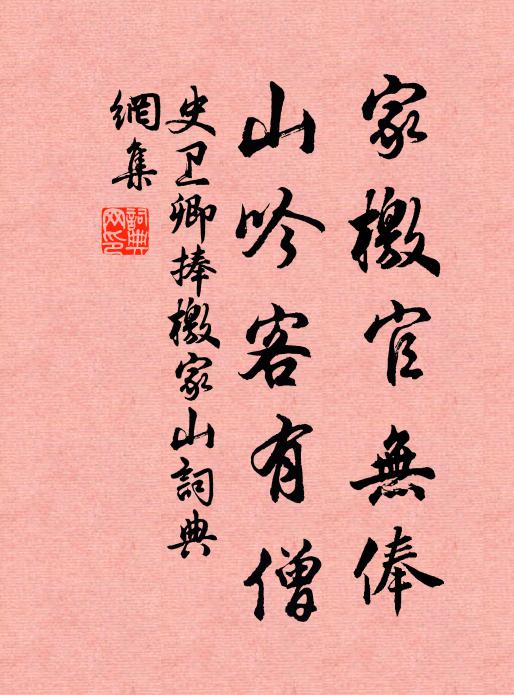 家檄官無俸
山吟客有僧
史卫卿捧檄家山詞典
網集
詞典網印